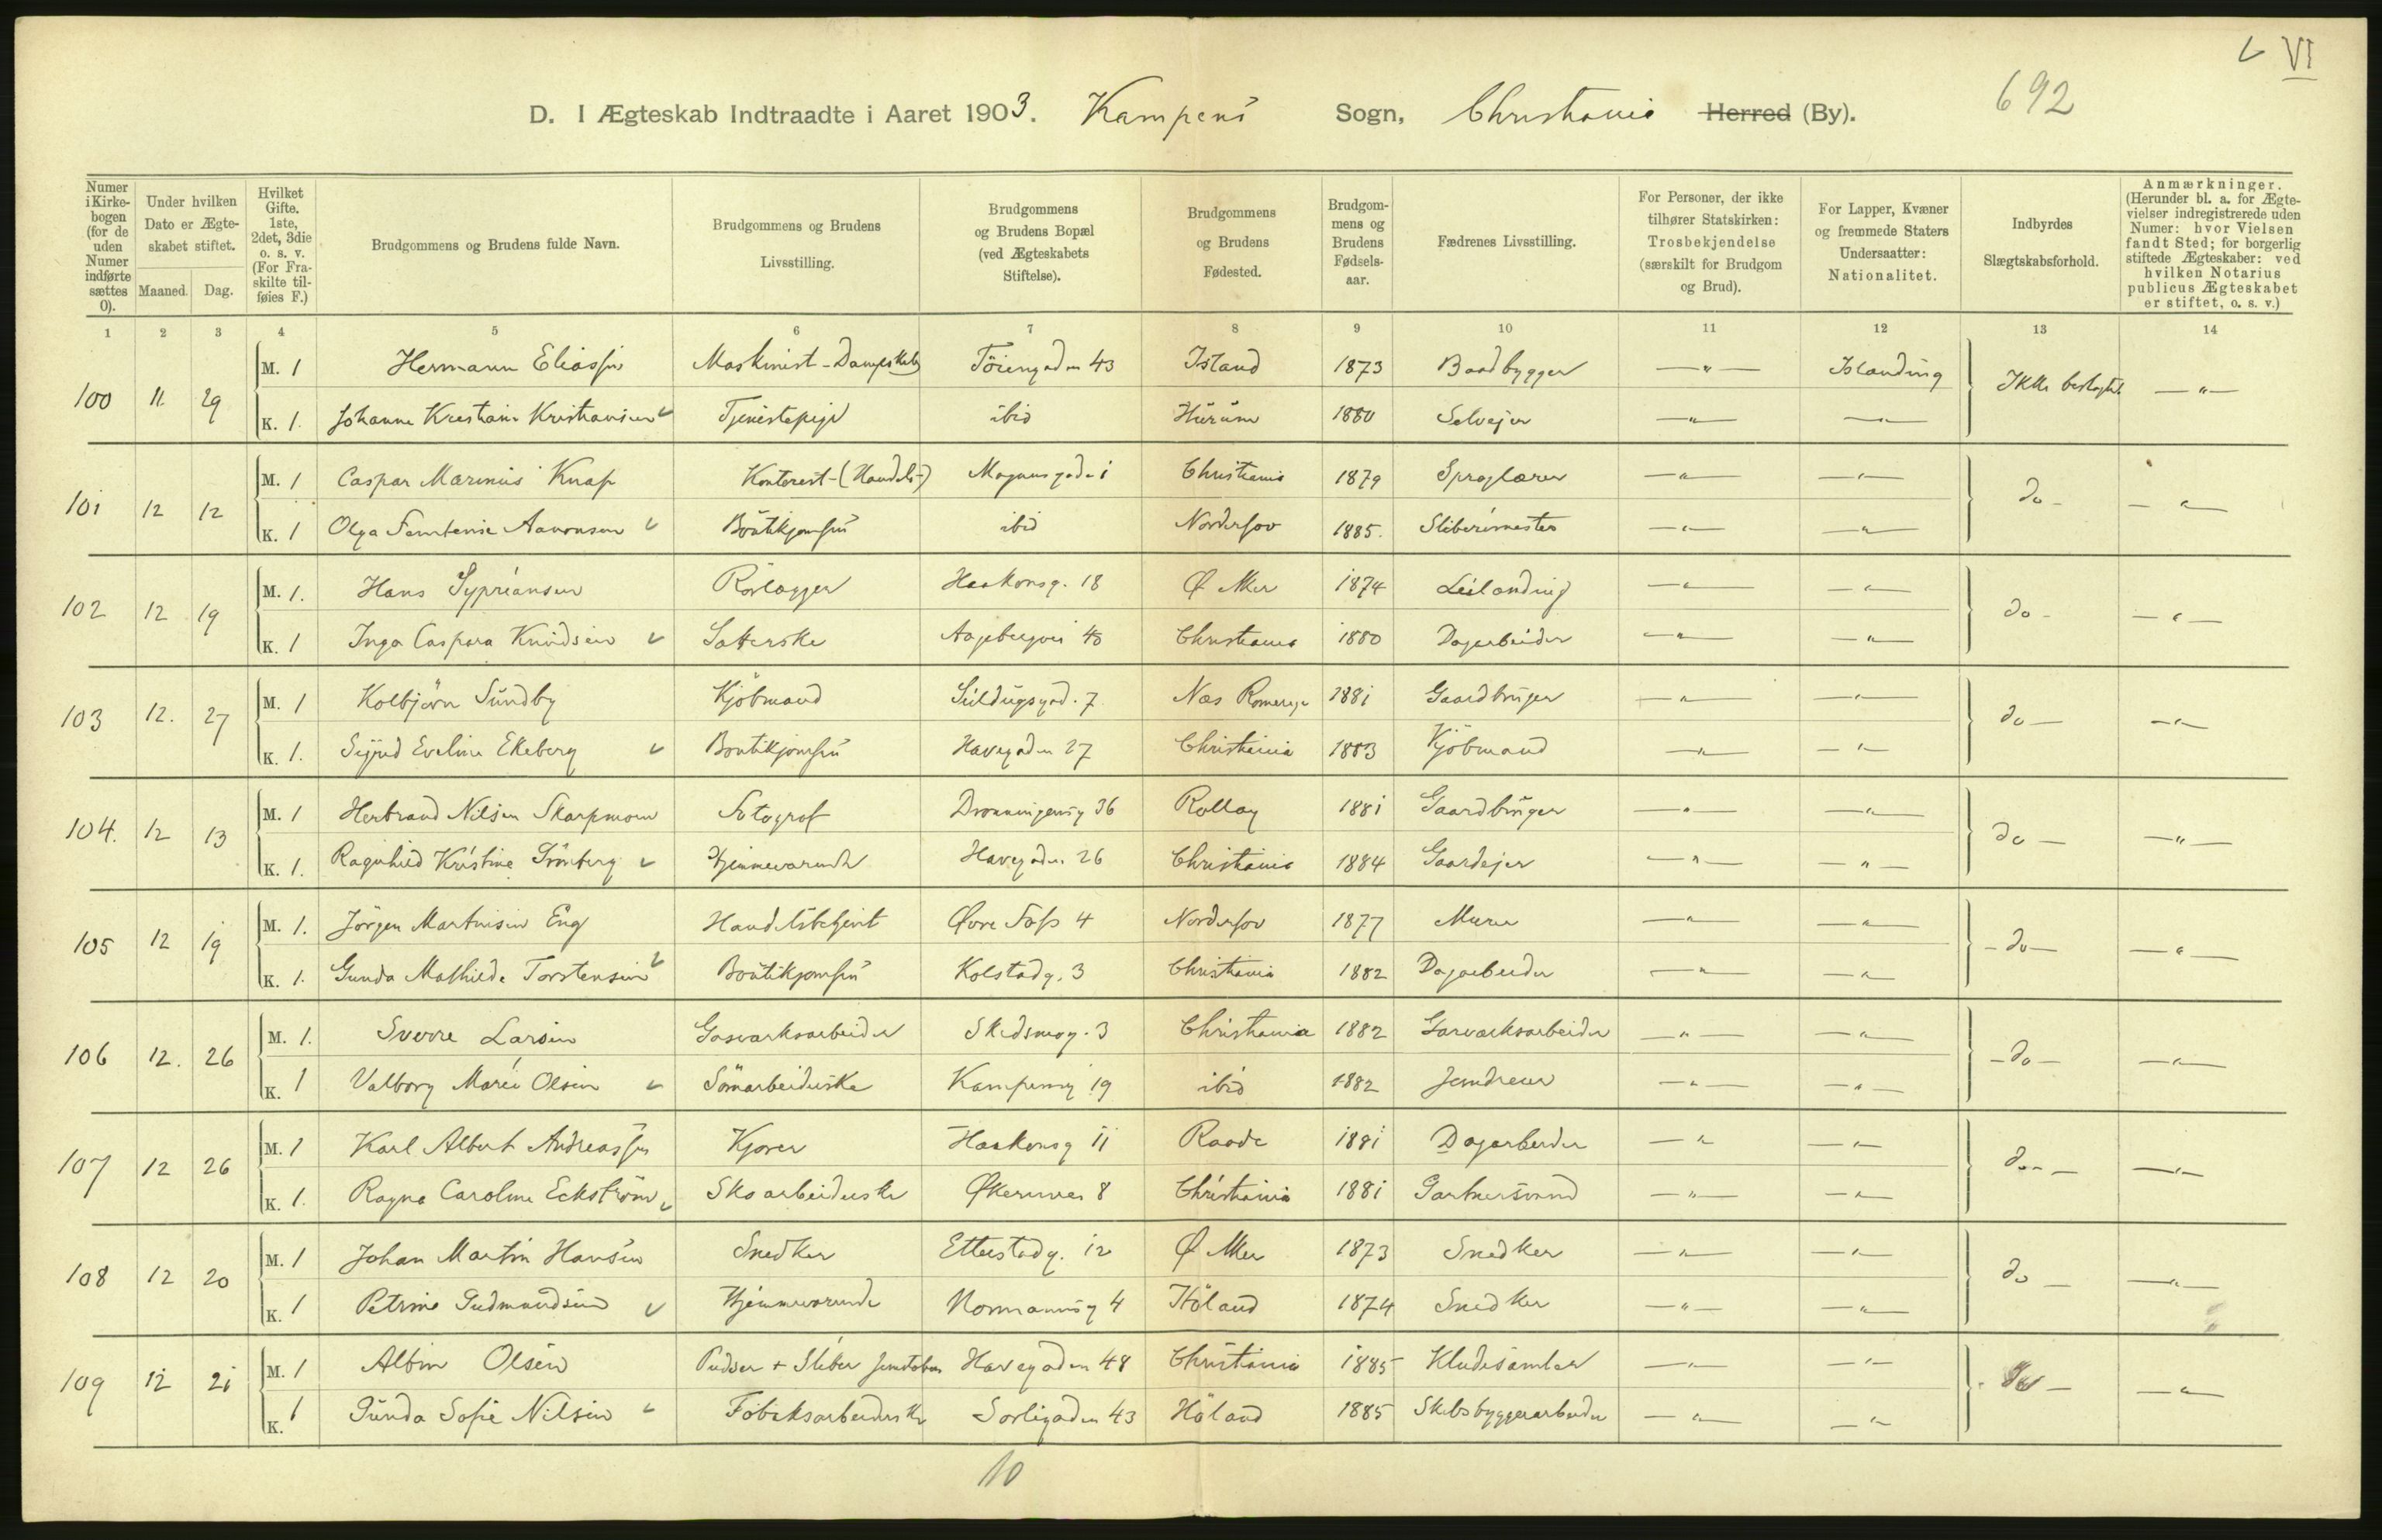 V VI
692
D. I Ægteskab Indtraadte i Aaret 1903. Kampens Sogn, Christiania Herred (By).
Numer i Kirke-bogen (for de uden Numer indførte sættes 0).
Under hvilken Dato er Ægte-skabet stiftet.
Maaned. Dag.
Hvilket Gifte. 1ste, 2det, 3die o. s. v. (For Fra-skilte til-føies F.)
Brudgommens og Brudens fulde Navn.
Brudgommens og Brudens Livsstilling.
Brudgommens og Brudens Bopæl (ved Ægteskabets Stiftelse).
Brudgommens og Brudens Fødested.
Brudgom-mens og Brudens Fødsels-aar.
Fædrenes Livsstilling.
For Personer, der ikke tilhører Statskirken: Trosbekjendelse (særskilt for Brudgom og Brud).
For Lapper, Kvæner og fremmede Staters Undersaatter: Nationalitet.
Indbyrdes Slægtskabsforhold.
Anmærkninger. (Herunder bl. a. for Ægte-vielser indregistrerede uden Numer: hvor Vielsen fandt Sted; for borgerlig stiftede Ægteskaber: ved hvilken Notarius publicus Ægteskabet er stiftet, o. s. v.)
1 2 3 4 5 6 7 8 9 10 11 12 13 14
100 11 29 M. 1 Hermann Eliassen Maskinist-Dampskib Töiengaden 43 Island 1873 Baadbygger —"— Islanding Ikke beslægtet —"—
K. 1. Johanne Kristiane Kristiansen Tjenestepige ibid Hurum 1880 Selvejer —"— —"—
101 12 12 M. 1 Caspar Marinius Knap Kontorist-(Handels-) Magnusgade 1 Christiania 1879 Sproglærer —"— —"— do — —"—
K. 1 Olga Aaronsen Boutikjomfru ibid Nordrefov 1885. Sliberimester —"— —"—
102 12 19 M. 1. Hans Sypriansen Rörlægger Haakonsg. 18 Ø Aker 1874 Leilænding —"— —"— do — —"—
K. 1 Inga Caspara Knudsen Satterske Aagebergvei 40 Christiania 1880 Dagarbeider —"— —"—
103 12. 27 M. 1 Kolbjørn Sundby Kjöbmand 7 Næs Romerige 1881 Gaardbruger —"— —"— do — —"—
K. 1. Sigrid Eveline Ekeberg Boutikjomfru Havegaden 27 Christiania 1883 Kjöbmand —"— —"—
104. 12 13 M. 1 Herbrand Nilsen Skarpmoen Fotograf Dronningensg 36 Rollag 1881 Gaardbruger —"— —"— do — —"—
K. 1. Ragnhild Kristine Grönberg Hjemmeværende Havegaden 26 Christiania 1884 Gaardejer —"— —"—
105 12 19 M. 1. Jörgen Martinsen Eng Handelsbetjent Øvre Foss 4 Nordrefov 1877 Murer —"— —"— —do— —"—
K. 1. Gunda Mathilde Torstensen Boutikjomfru Kolstadg. 3 Christiania 1882 Dagarbeider —"— —"—
106 12. 26 M. 1. Sverre Larsen Gasværksarbeider Skedsmog. 3 Christiania 1882 Gasværksarbeider —"— —"— —do— —"—
K. 1 Valborg Marie Olsen Sömarbeiderske Kampensg 19 ibid 1882 Jerndreier —"— —"—
107 12 26 M. 1 Karl Albert Andreassen Kjører Haakonsg 11 Raade 1881 Dagarbeider —"— —"— do — —"—
K. 1. Ragna Caroline Eckström Skoarbeiderske Økernvei 8 Christiania 1881 Gartnersvend —"— —"—
108 12 20 M. 1 Johan Martin Hansen Snedker Etterstadg. 12 Ø Aker 1873 Snedker —"— —"— do — —"—
K. 1 Petrine Gudmundsen Hjemmeværende Normannsg 4 Höland 1874 Snedker —"— —"—
109 12 21 M. 1 Albin Olsen Pudser + Sliber Havegaden 48 Christiania 1885 Kludesamler —"— —"— do — —"—
K. 1 Gunda Sofie Nilsen Fabriksarbeiderske Sorligaden 43 Höland 1885 Skibsbyggerarbeider —"— —"—
10